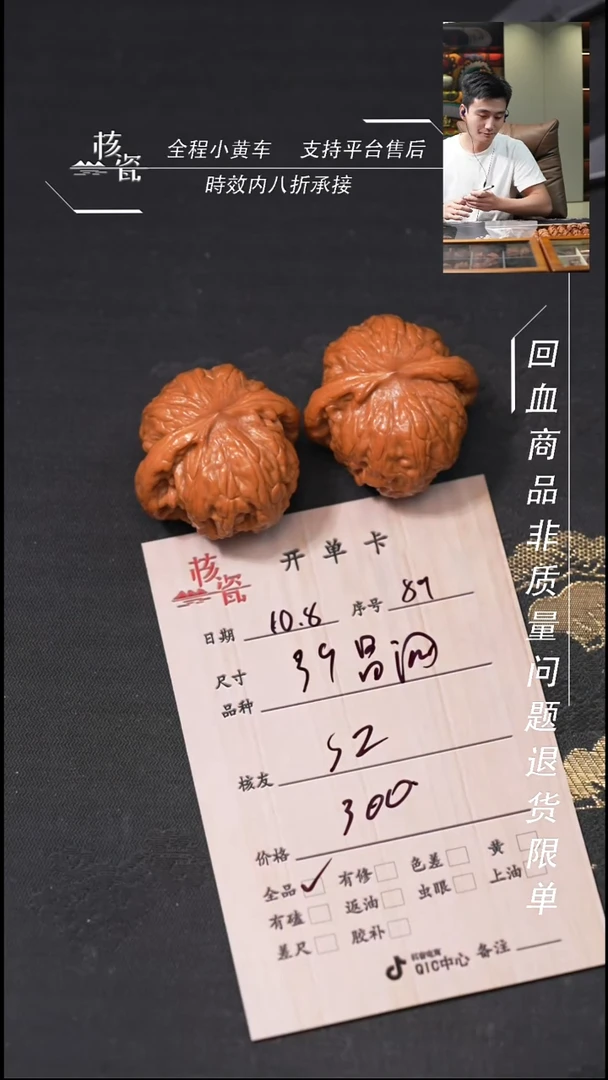 核瓷
全程小黄车 支持平台售后
時效内八折承接
回血商品非质量问题退货限单
核瓷
开单卡
日期 10.8 序号 89
尺寸 39
品种
核友 S2
价格 300
全品 ✓ 有修 色差 黄
有磕 返油 虫眼 上油
差尺 胶补
抖音电商
QIC中心 备注